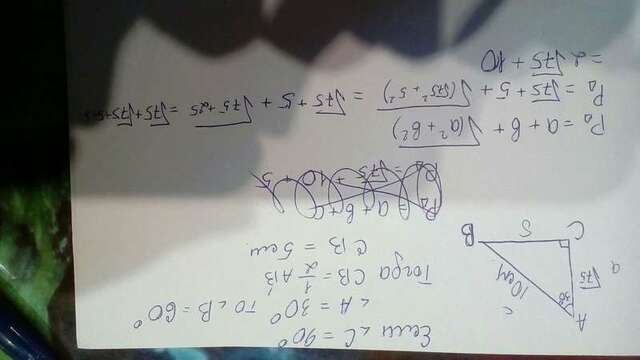 Если ∠C = 90°
∠A = 30° то ∠B = 60°
Тогда CB = 1/2 AB
CB = 5см
A
30
c
10см
√75
a
C
5
B
P△ = √75 + 10 + 5
P△ = a + b + √(a² + b²)
P△ = √75 + 5 + √(√75² + 5²) = √75 + 5 + √75 + 25 = √75 + √75 + 5 + 5
= 2√75 + 10